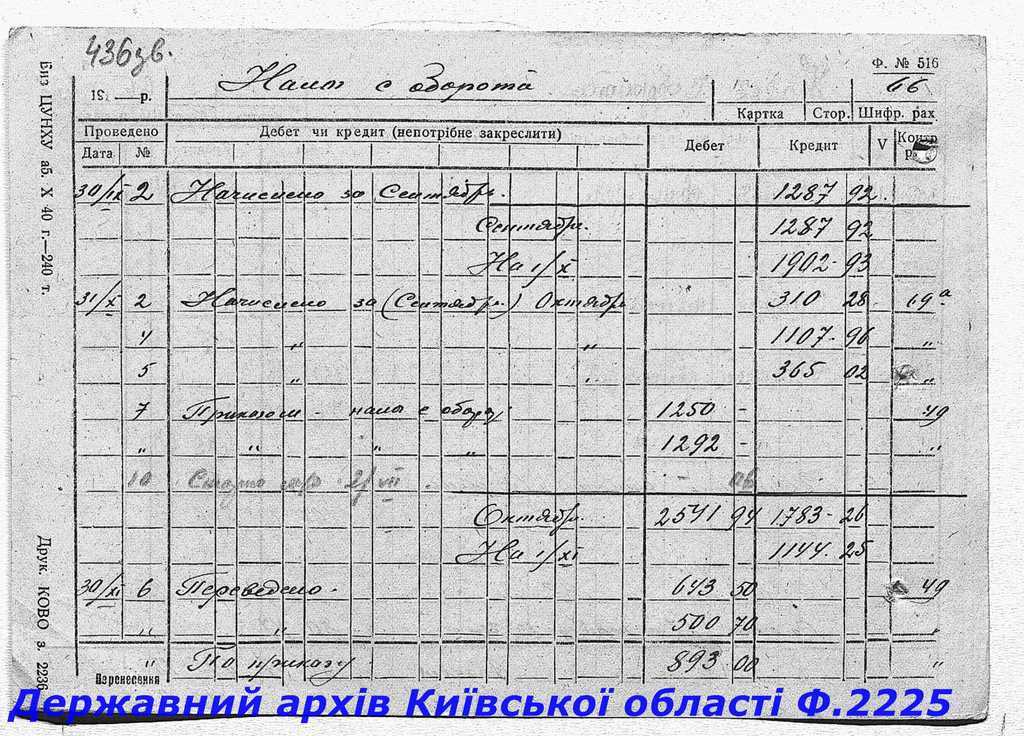 436зв.
Ф. № 516
Налог с оборота
66
19 р.
Картка Стор. Шифр. рах
Проведено Дебет чи кредит (непотрібне закреслити) Дебет Кредит V Контр р.
Дата №
30/IX 2 Начислено за Сентябрь. 1287 92.
Сентябрь. 1287 92
На 1/X 1902-93
31/X 2 Начислено за (Сентябрь) Октябрь 310 28 19а
4 „ „ 1107-96 „
5 „ „ 365 02 „
7 налог с оборот 1250 - 49
„ „ „ „ 1292 - „
10 Сторно 06
Октябрь. 2541 94 1783-26
На 1/XI 1144 25
30/XI 6 Переведено. 643 50 49
„ „ 500 70 „
„ По приказу 893 00 „
Перенесення
Биз ЦУНХУ аб. X 40 г.—240 т.
Друк. КОВО з. 2236
Державний архів Київської області Ф.2225